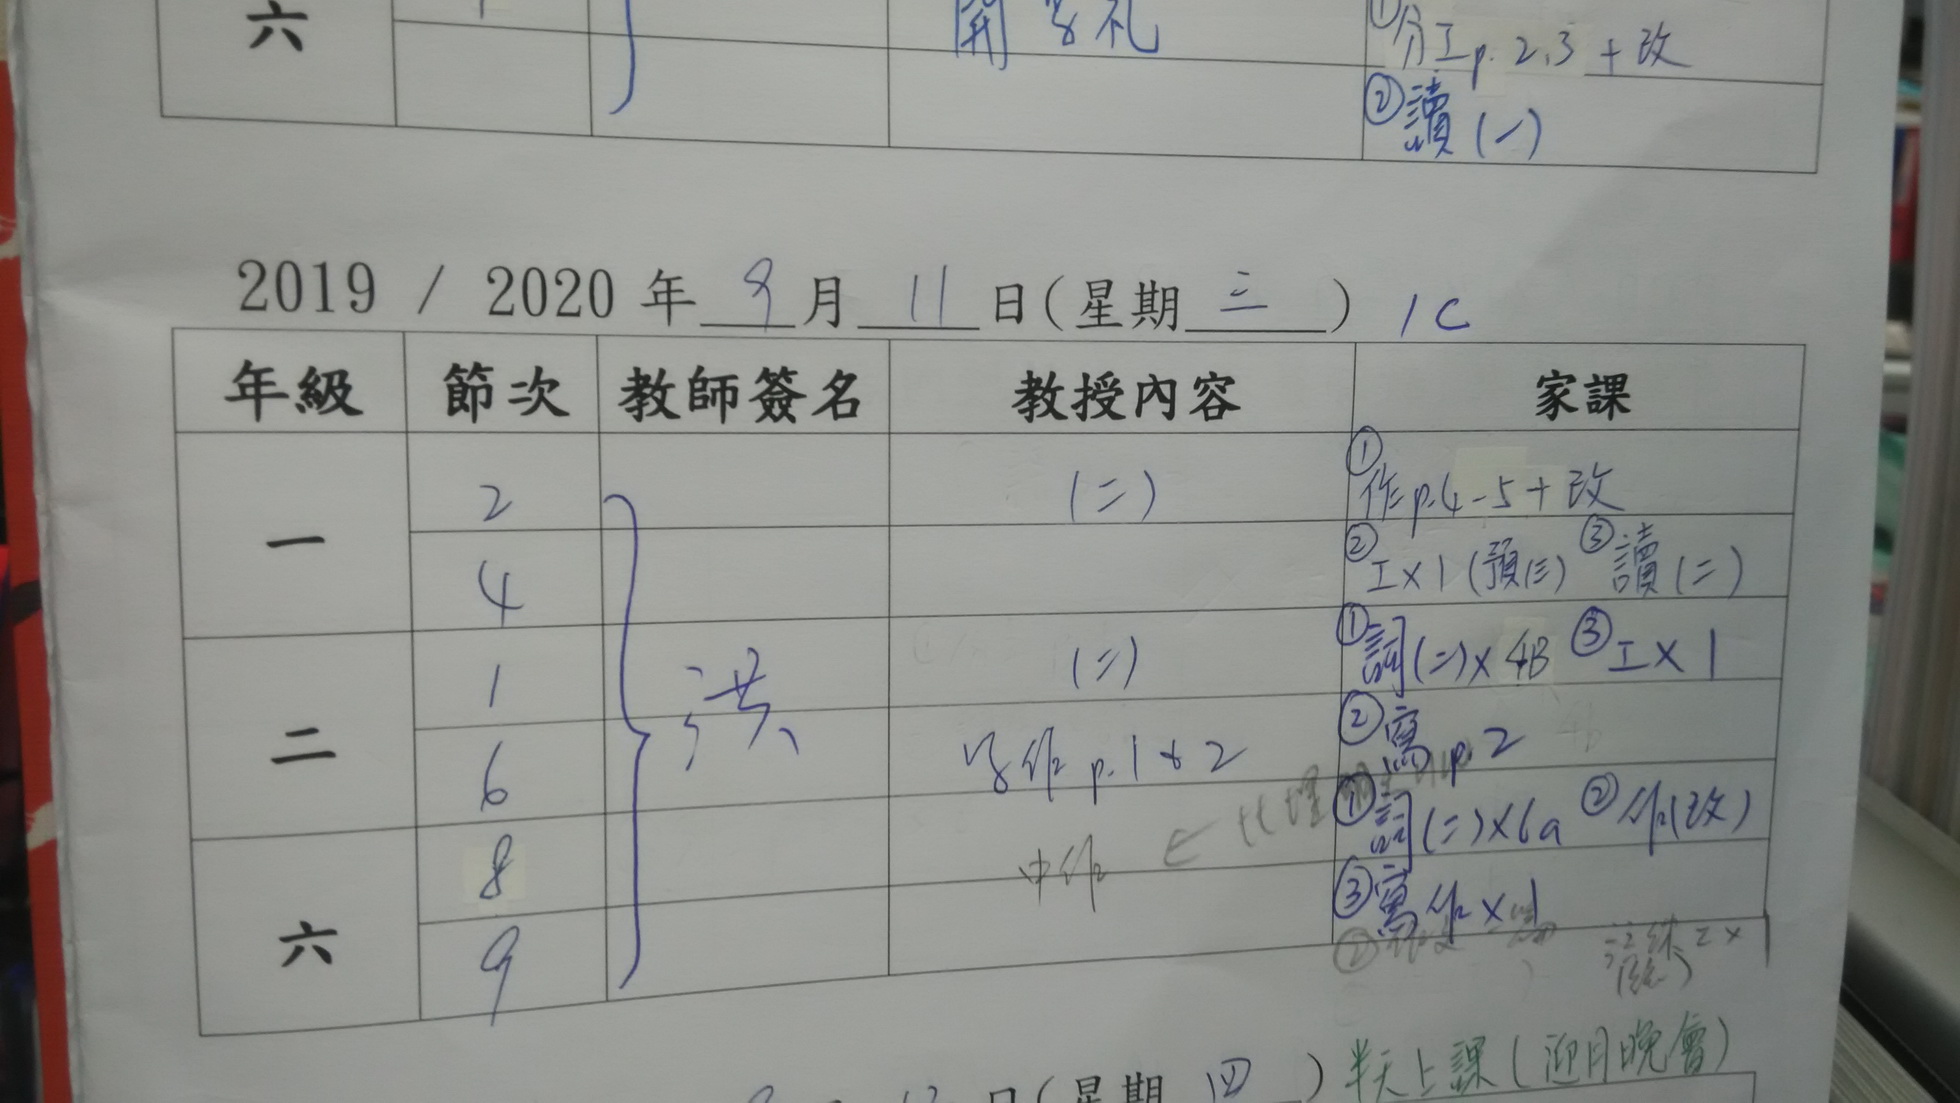 六
開學礼
①分工p.2,3 + 改
②讀(一)
2019 / 2020 年 9 月 11 日(星期 三 ) 1C
年級 節次 教師簽名 教授內容 家課
一 2 (二) ①作p.4-5+改
4 ②工×1(預(三) ③讀(二)
二 1 洪 (二) ①詞(二)×4B ③工×1
6 p.1+2 ②寫p.2
六 8 中作 ①詞(二)×6a ②作(改)
9 ③寫作×1
日(星期 四 ) 半天上課(迎月晚會)